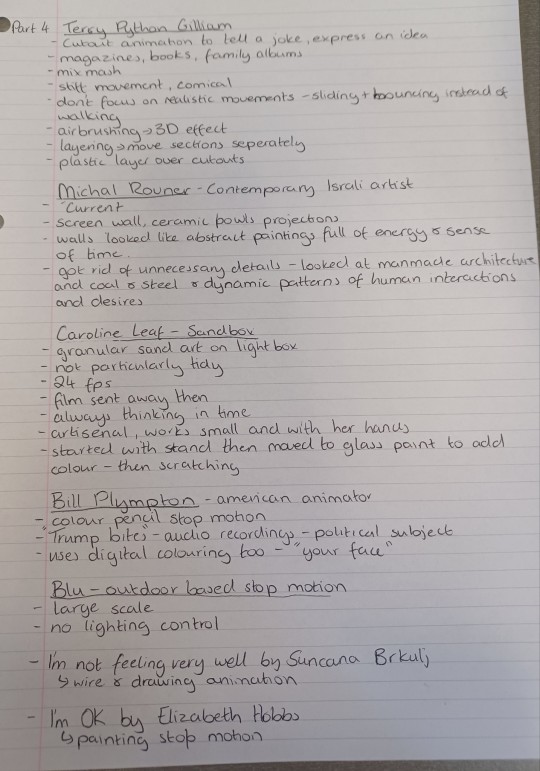 Part 4 Terry Python Gilliam
- Cutout animation to tell a joke, express an idea
- magazines, books, family albums
- mix mash
- stiff movement, comical
- don't focus on realistic movements - sliding + bouncing instead of
walking
- airbrushing → 3D effect
- layering → move sections seperately
- plastic layer over cutouts
Michal Rovner - Contemporary Israli artist
- "Current
- screen wall, ceramic bowls projections
- walls looked like abstract paintings full of energy & sense
of time.
- got rid of unnecessary details - looked at manmade architecture
and coal & steel & dynamic patterns of human interactions
and desires
Caroline Leaf - Sandbox
- granular sand art on light box
- not particularly tidy
- 24 fps
- film sent away then
- always thinking in time
- artisenal, works small and with her hands
- started with stand then moved to glass paint to add
colour - then scratching
Bill Plympton - american animator
- colour pencil stop motion
- "Trump bites" - audio recordings - political subject
- uses digital colouring too - "your face"
Blu - outdoor based stop motion
- large scale
- no lighting control
- I'm not feeling very well by Suncana Brkulj
↳ wire & drawing animation
- I'm OK by Elizabeth Hobbs
↳ painting stop motion